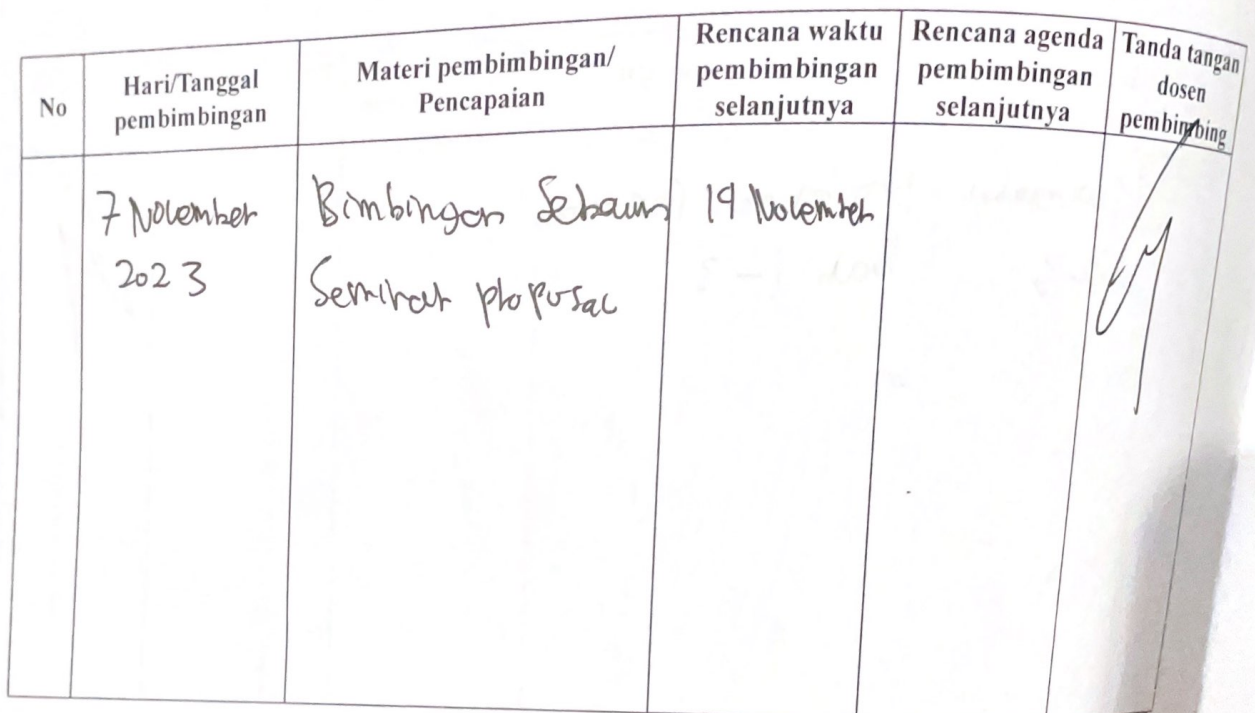 No
Hari/Tanggal
pembimbingan
Materi pembimbingan/
Pencapaian
Rencana waktu
pembimbingan
selanjutnya
Rencana agenda
pembimbingan
selanjutnya
Tanda tangan
dosen
pembimbing
7 November
2023
Bimbingan
Seminar proposal
November